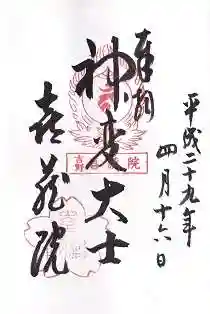 平成二十九年
四月十六日
奉拝
神変大士
喜蔵院
吉野 喜蔵院